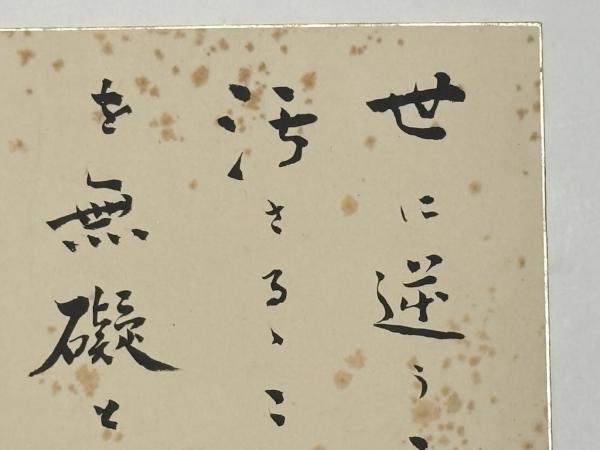 世に逆うこ
汚さるゝこ
を無礙と